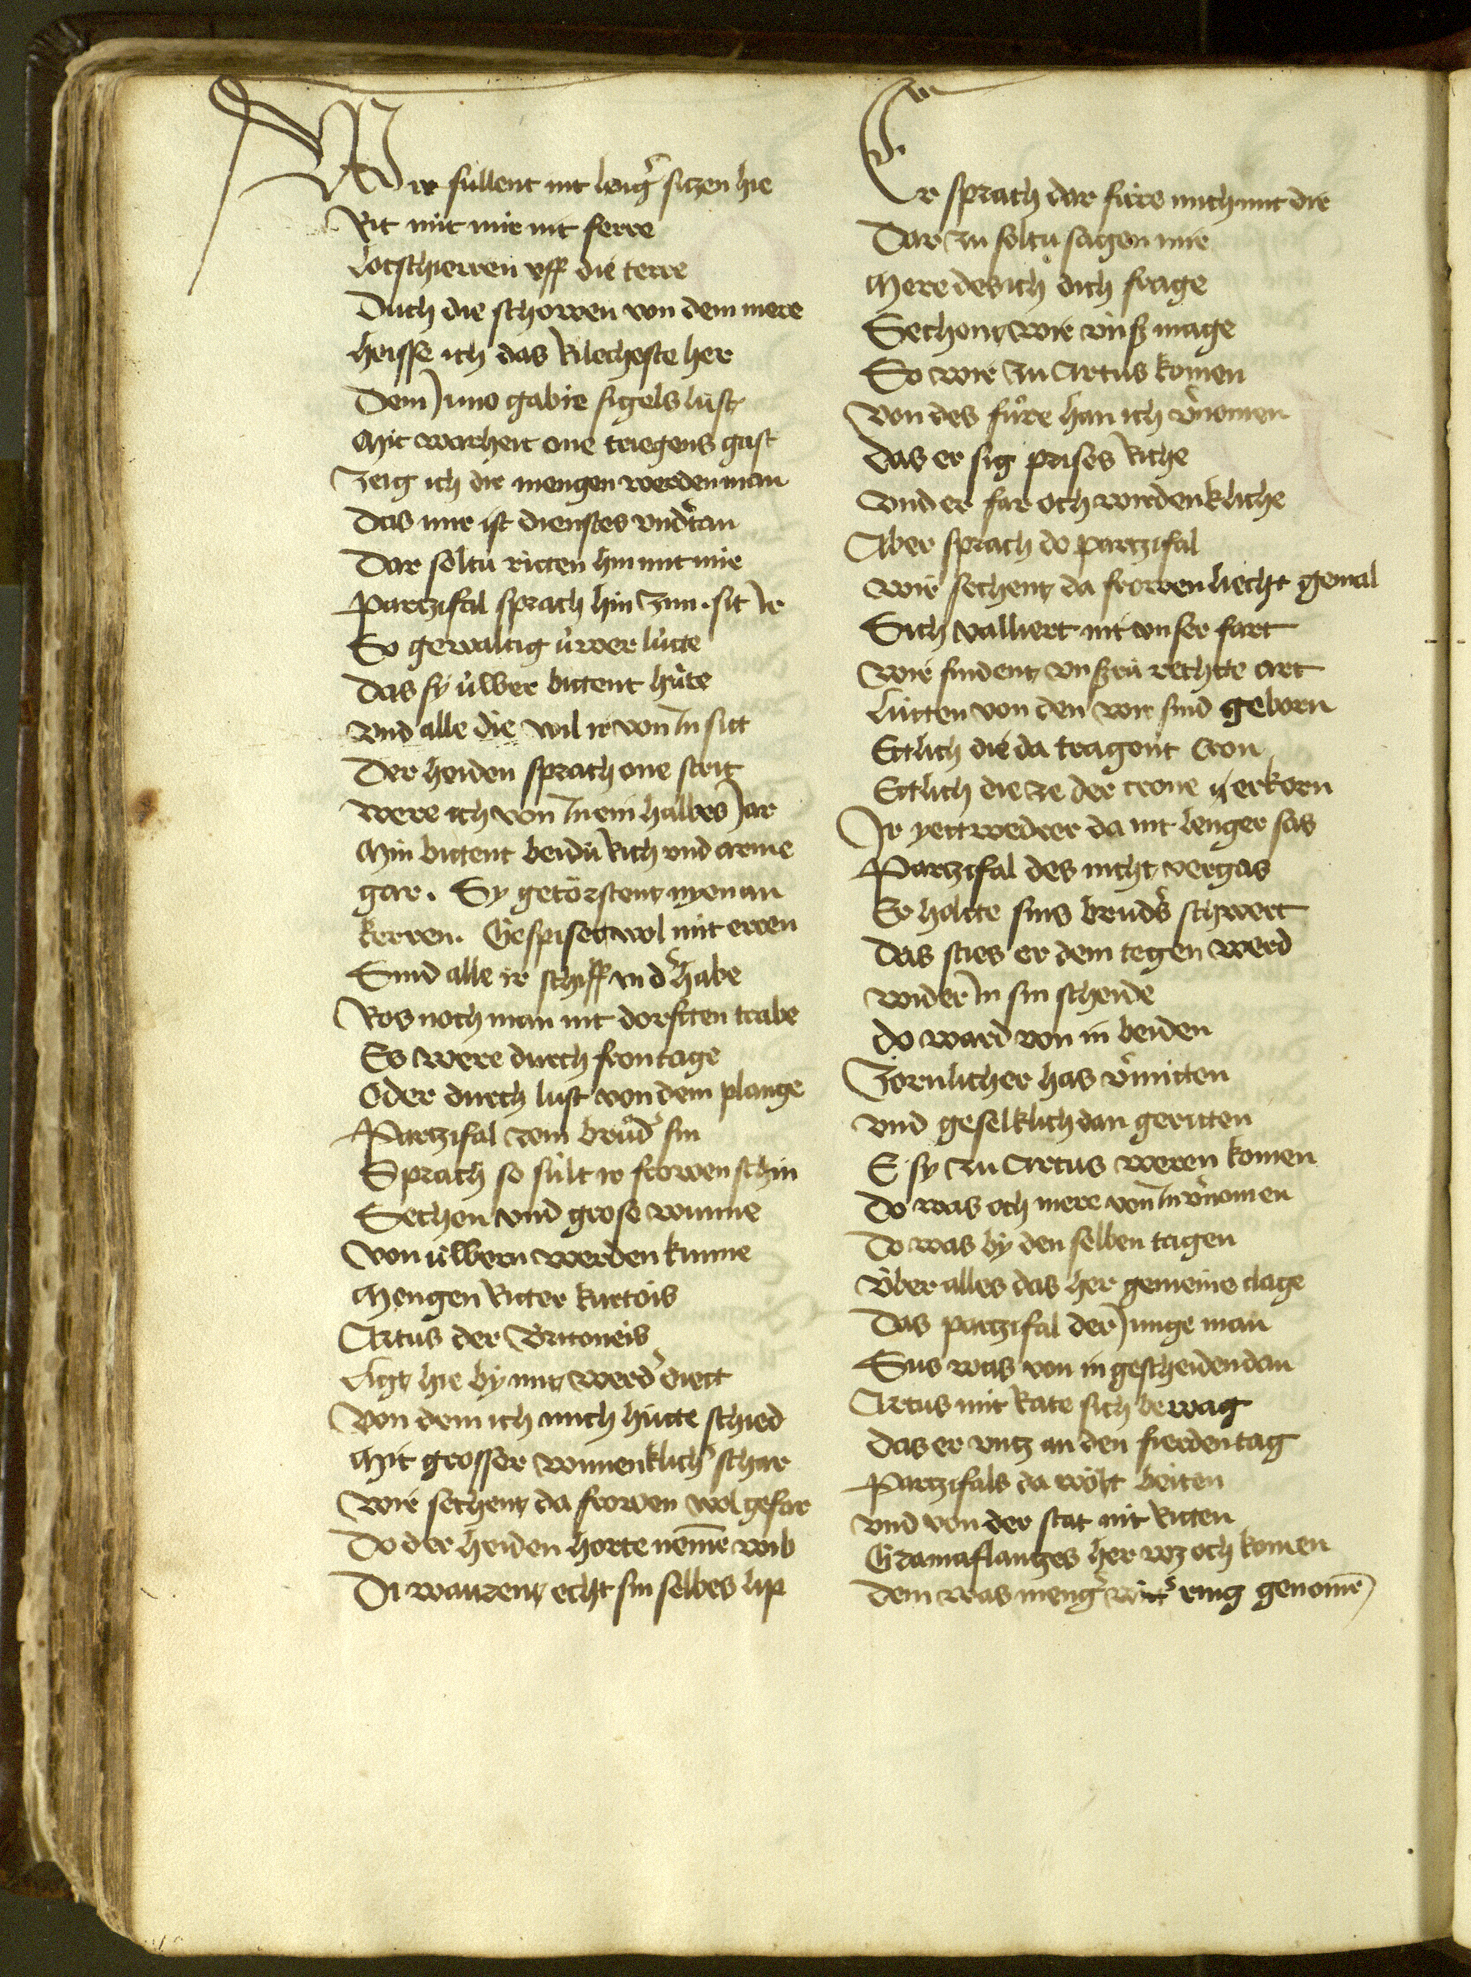 Wir sullent nit leng̾ sitzen hie
Rit mit mir nit ferre
Lotschierren vff die terre
Duch die schowen von dem mere
Heisse ich das Rilecheste her
Dem Juno gabie sigels lust
Mit warheit one triegens gast
Zeig ich dir mengen werden man
Das mir ist dienstes vnd̾tan
Dar soltu ritten hin mit mir
Partzifal sprach hin zim . sit Ir
So gewaltig úwer lúte
Das sy úwer bittent húte
Vnd alle die wil ir von In sitt
Der heiden sprach one strit
were ich von In ein halbes Jar
Min bittent beidú Rich vnd arme
gar . Sy getörstent nyenan
kerren . Gespiset wol mit erren
Sind alle ir schiff in d̾ habe
Ros noch man nit dorftten trabe
Es were durch fontage
Oder durch lust von dem plange
Partzifal zem brůd̾ sin
Sprach so súlt ir frowen schin
Sechen vnd grose wunne
Von úwern werden kunne
Mengen Ritter kurtois
Artus der Britoneis
Ligt hie by mit werd̾ diett
Von dem ich mich hútte schied
Mit grosser wunneklich̾ schar
wir sechent da frowen wol gefar
Do der heiden horte nemē wib
Di warent echt sin selbes lip
Er sprach dar fúre mich mit dir
Dar zu soltu sagen mir
Mere des ich dich frage
Sechent wir vnsz mage
So wir zu Artus komen
Von des fůre han ich v̾nomen
Das er sig prises Riche
Vnd er far och wirdenkliche
Aber sprach do partzifal
wir sechent da frowen liecht gemal
Sich valliert nit vnser fart
wir findent vnszrú rechtte art
Lútten von den wir sind geborn
Ettlich die da tragent cron
Ettlich die ze der crone erkorn
Ir yettwedrer da nit lenger sas
Partzifal des nicht vergas
Er holtte sins brud̾s schwert
Das sties er dem tegen werd
wider In sin scheide
do ward von in beiden
Zornlicher has v̾mitten
vnd geselklich dan geritten
E sy zu Artus weren komen
Do was och mere von In v̾nomen
Do was by den selben tagen
Vber alles das her gemeine clage
Das partzifal der Junge man
Sus was von in gescheiden dan
Artus mit Rate sich bewag
Das er vntz an den fierden tag
Partzifals da wolt beiten
vnd von der stat nit Ritten
Gramaflantzes her wz och komen
Dem was meng̾ wit̾ ring genomē